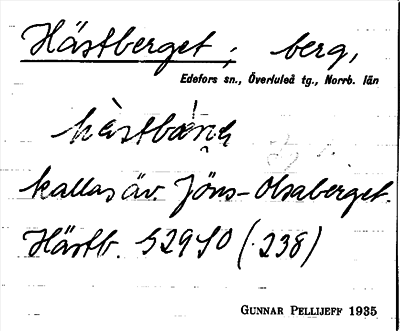 Hästberget; berg,
Edefors sn., Överluleå tg., Norrb. län
hàstbárjɛ
kallas äv. Jöns-Olsaberget.
Hästb. S29SO (238)
GUNNAR PELLIJEFF 1935